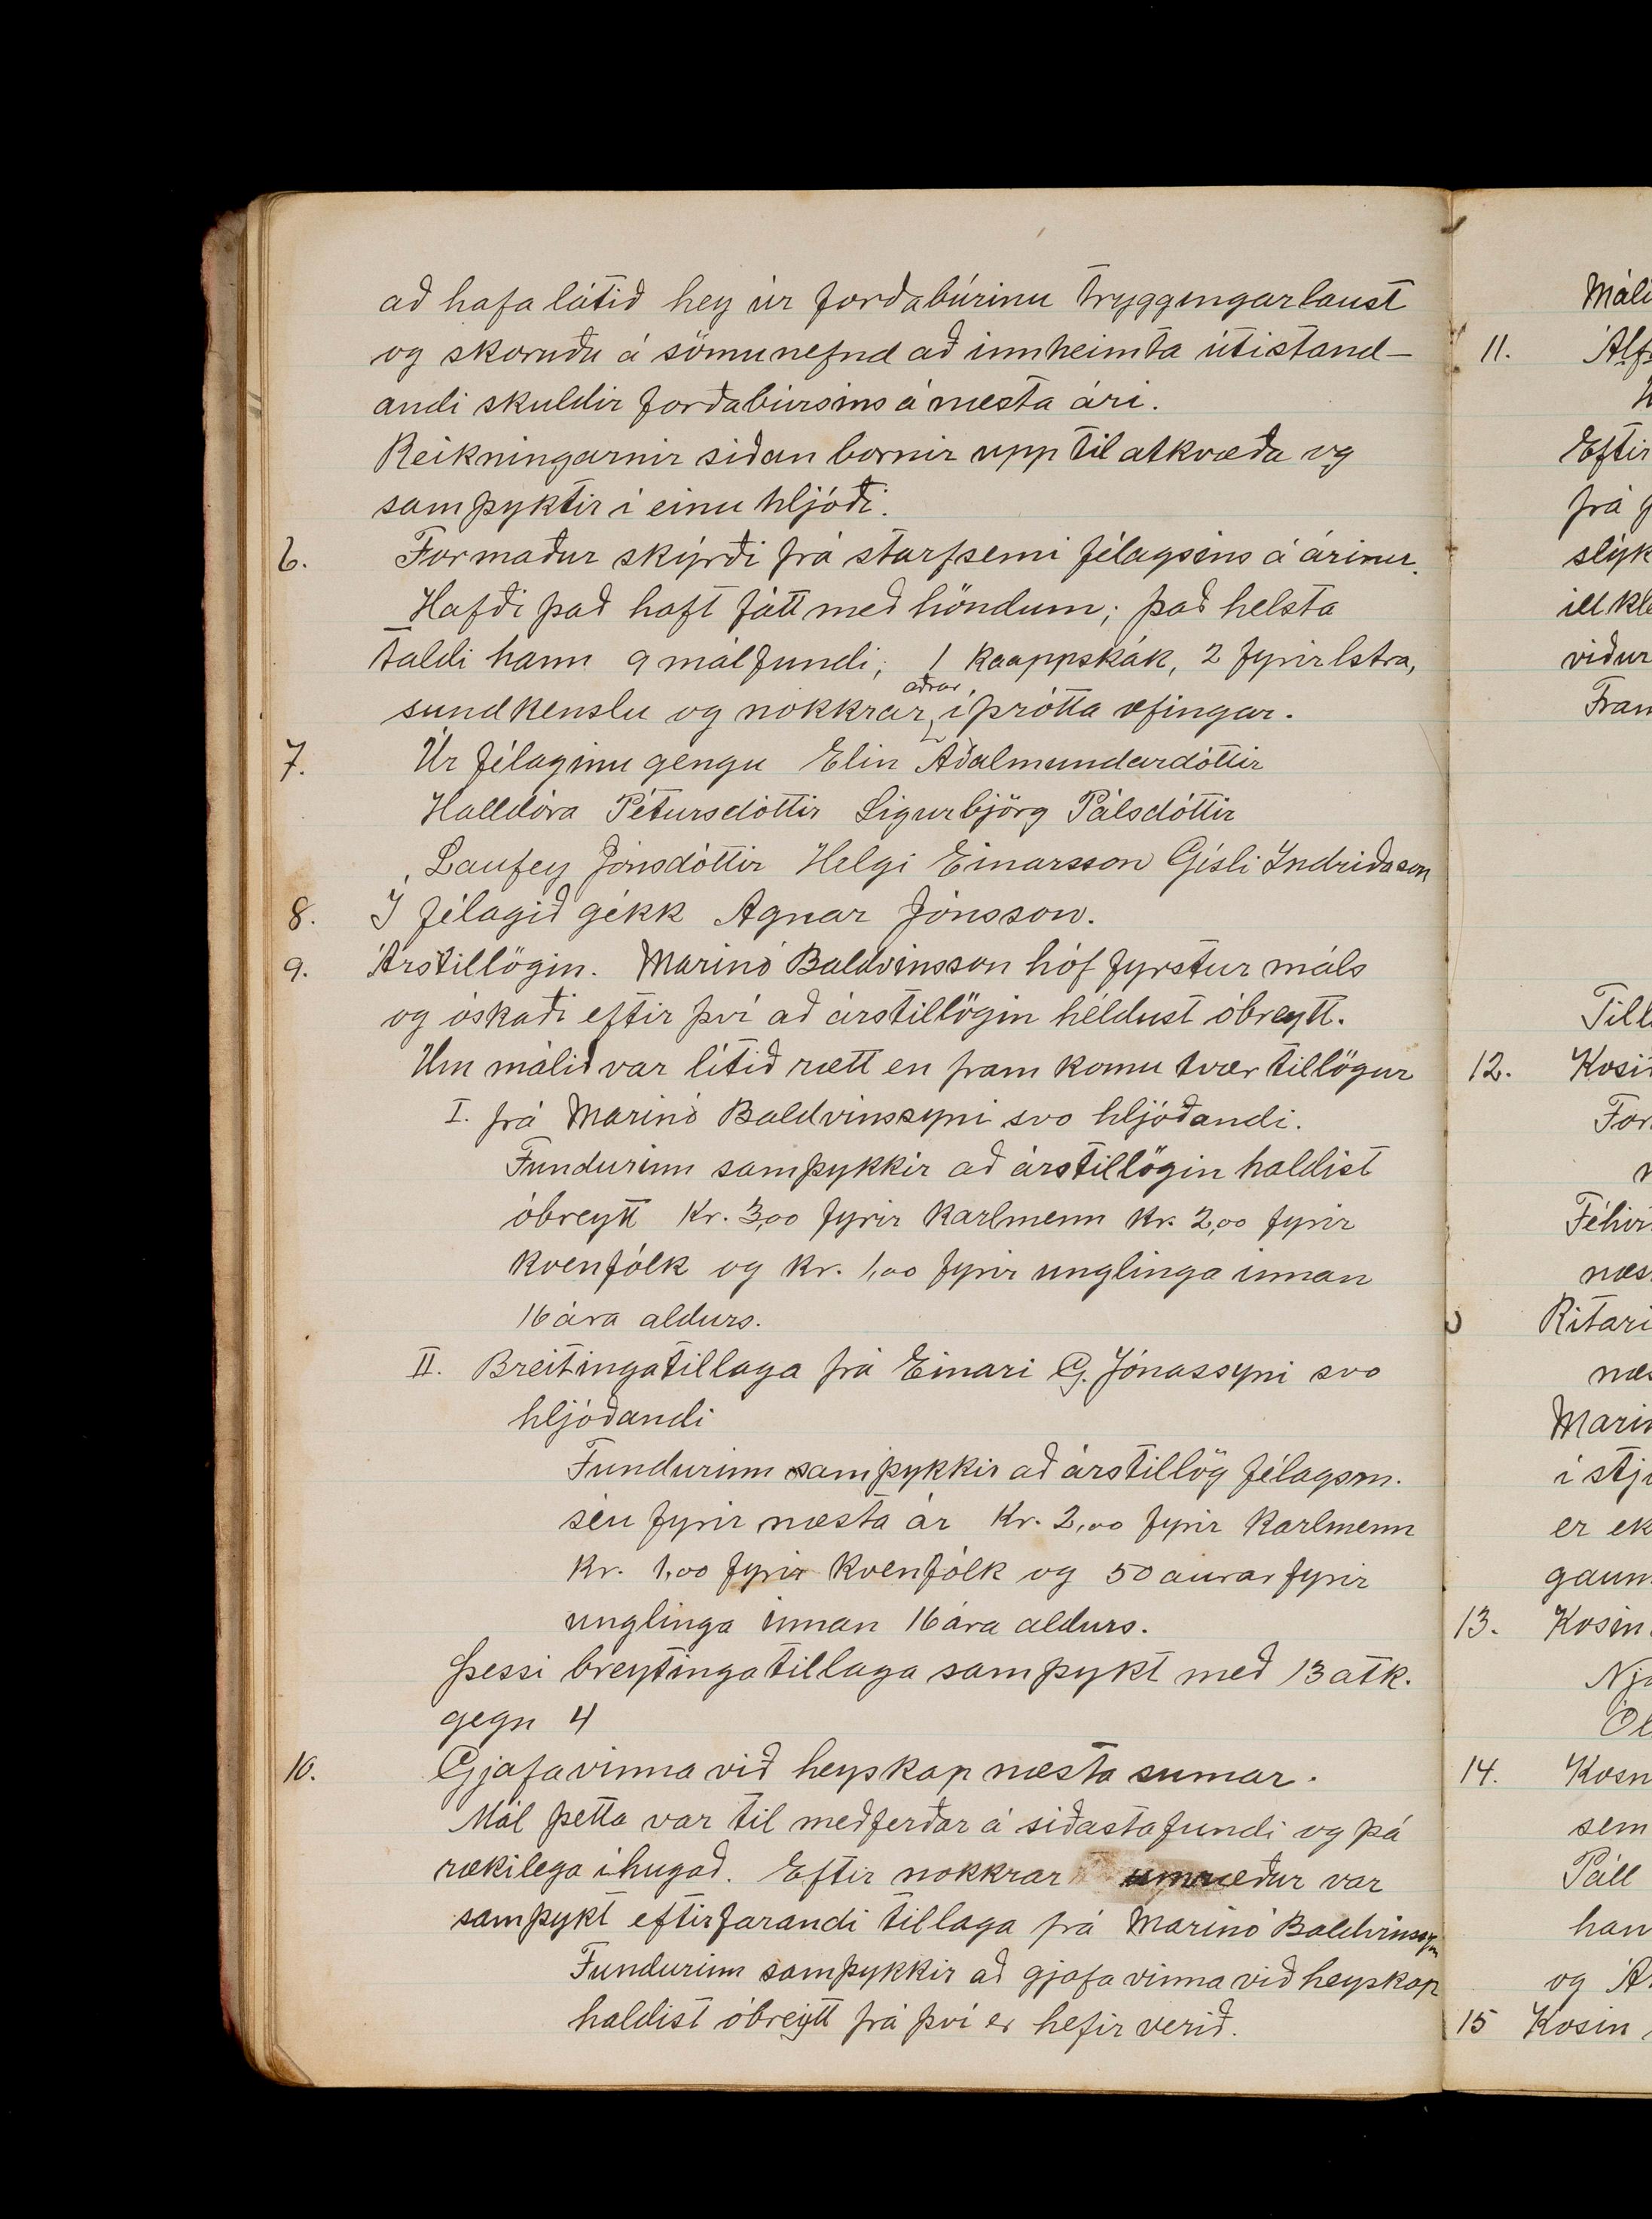 að hafa látið hey úr forðabúrinu tryggingarlaust
og skoruðu á sömu nefnd að innheimta útistand-
andi skuldir forðabúrsins á næsta ári.
Reikningarnir siðan bornir upp til atkvæða og
samþyktir í einu hljóði.
6. Formaður skýrði frá starfsemi félagsins á árinu.
Hafði það haft fátt með höndum; það helsta
taldi hann 9 málfundi, 1 kaappskák, 2 fyrirlstra,
sundkenslu og nokkrar aðrar íþrótta æfingar.
7. Úr félaginu gengu Elin Aðalmundardóttir
Halldóra Pétursdóttir Sigurbjörg Pálsdóttir
Laufey Jónsdóttir Helgi Einarsson Gísli Indriðason
8. Í félagið gékk Agnar Jónsson.
9. Árstillögin. Marinó Baldvinsson hóf fyrstur máls
og óskaði eftir því að árstillögin héldust óbreytt.
Um málið var lítið rætt en fram komu tvær tillögur
I. frá Marinó Baldvinssyni svo hljóðandi.
Fundurinn samþykkir að árstillögin haldist
óbreytt Kr. 3,00 fyrir karlmenn kr. 2,00 fyrir
kvenfólk og kr. 1,00 fyrir unglinga innan
16 ára aldurs.
II. Breitingatillaga frá Einari G. Jónassyni svo
hljóðandi
Fundurinn samþykkir að árstillög félagsm.
séu fyrir næsta ár Kr. 2,00 fyrir karlmenn
Kr. 1,00 fyrir kvenfólk og 50 aurar fyrir
unglinga innan 16 ára aldurs.
Þessi breytingatillaga samþykt með 13 atk.
gegn 4
10. Gjafavinna við heyskap næsta sumar.
Mál þetta var til meðferðar á siðasta fundi og þá
rækilega íhugað. Eftir nokkrar umræður var
samþykt eftirfarandi tillaga frá Marinó Baldvinssyni
Fundurinn samþykkir að gjafavinna við heyskap
haldist óbreytt frá því er hefir verið.
Máli
11. Álf
Eftir
frá
slýk
ill kle
viður
Fram
Till
12. Kosi
For
Féhir
næs
Ritari
næs
Marin
í stj
er ek
gaum
13. Kosin
Nj
Ól
14. Kosn
sem
Páll
han
og
15 Kosin